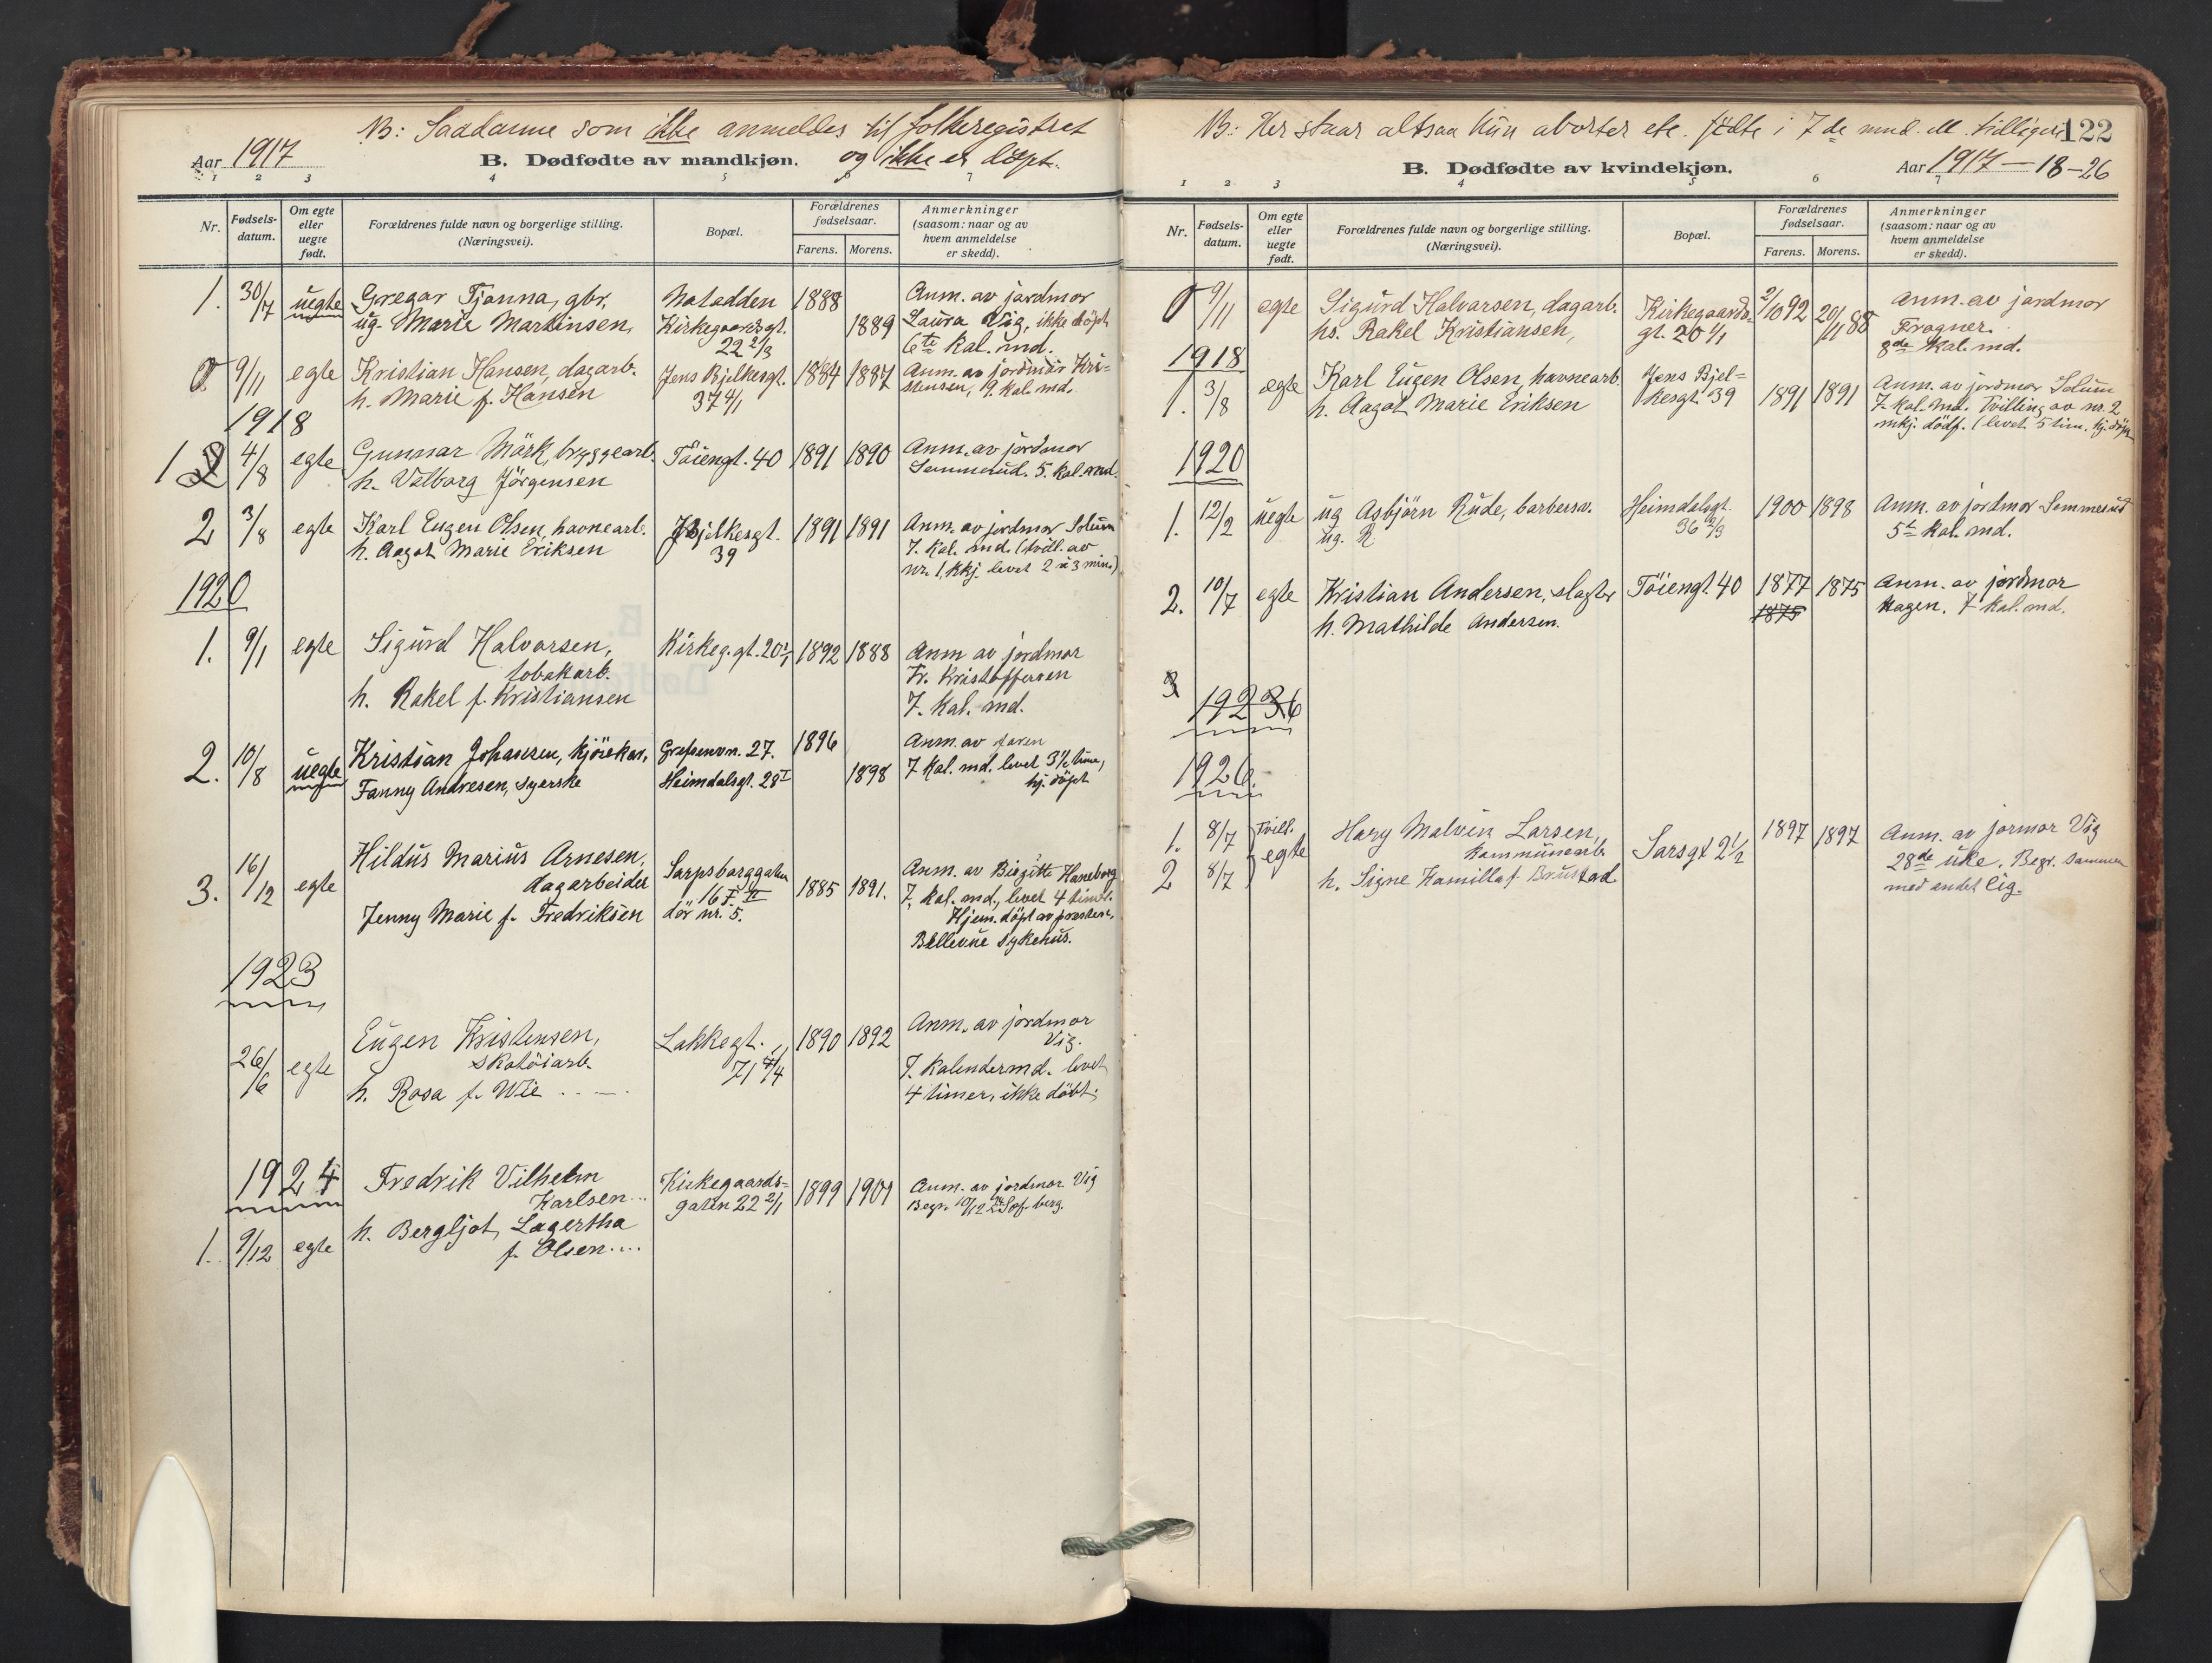 NB: Saadanne som ikke anmeldes til folkeregistret
og ikke er döpt.
Aar 1917
B. Dødfødte av mandkjøn.
1 2 3 4 5 6 7
Nr.
Fødsels-
datum.
Om egte
eller
uegte
født.
Forældrenes fulde navn og borgerlige stilling.
(Næringsvei).
Bopæl.
Forældrenes
fødselsaar.
Farens. Morens.
Anmerkninger
(saasom: naar og av
hvem anmeldelse
er skedd).
1. 30/7 uegte Gregar Tjønna, gbr. Notodden 1888 Anm. av jordmor
ug. Marie Martinsen, Kirkegaardsgt. 1889 Laura Vig, ikke döpt
22 2/3 6te kal. md.
0 9/11 egte Kristian Hansen, dagarb. Jens Bjelkesgt. 1884 1887 Anm. av jordmor Kri-
h. Marie f. Hansen 37 4/1 stensen, 9. kal. md.
1918
1 4/8 egte Gunnar Mörk, bryggearb. Töiengt. 40 1891 1890 Anm. av jordmor
h. Valborg Jörgensen Semmerud. 5. kal. md.
2 3/8 egte Karl Eugen Olsen, havnearb. J. Bjelkesgt. 1891 1891 Anm. av jordmor Solum
h. Aagot Marie Eriksen 39 7. kal. md. (tvill. av
nr. 1, kkj. levet 2 à 3 min.)
1920
1. 9/1 egte Sigurd Halvorsen, Kirkeg.gt. 20 1892 1888 Anm av jordmor
tobakarb. Fr. Kristoffersen
h. Rakel f. Kristiansen 7. kal. md.
2. 10/8 uegte Kristian Johansen, kjörekar, Grefsenvn. 27. 1896 Anm. av faren
Fanny Andresen, syerske Heimdalsgt. 28 I 1898 7 kal. md. levet 3½ time,
hj. döpt
3. 16/12 egte Hildus Marius Arnesen, Sarpsborggaten 1885 1891. Anm. av Birgitte Haneborg
dagarbeider 16 I II 7. kal. md., levet 4 timer.
Jenny Marie f. Fredriksen dör nr. 5. Hjem. döpt av presten,
Bellevue sykehus.
1923
26/6 egte Eugen Kristensen, Lakkegt. 1890 1892 Anm. av jordmor
skotöiarb. 71 4/4 Vig.
h. Rosa f. Wie 7. kalendermd. levet
4 timer, ikke döbt.
1924
Fredrik Vilhelm Kirkegaards- 1899 1901 Anm. av jordmor Vig
Karlsen gaten 22 2/1 Begr. 10/12 24 Sof. berg.
1. 9/12 egte h. Bergljot Lagertha
f. Olsen
NB: Her staar altsaa kun aborter etc. födte i 7de mnd. ell. tidligere
122
B. Dødfødte av kvindekjøn.
Aar 1917—18—26
1 2 3 4 5 6 7
Nr.
Fødsels-
datum.
Om egte
eller
uegte
født.
Forældrenes fulde navn og borgerlige stilling.
(Næringsvei).
Bopæl.
Forældrenes
fødselsaar.
Farens. Morens.
Anmerkninger
(saasom: naar og av
hvem anmeldelse
er skedd).
0 9/11 egte Sigurd Halvorsen, dagarb. Kirkegaards- 2/10 92 20/11 88 Anm. av jordmor
hs. Rakel Kristiansen, gt. 20 1/1 Frogner.
8de kal. md.
1918
1. 3/8 egte Karl Eugen Olsen, havnearb. Jens Bjel- 1891 1891 Anm. av jordmor Solum
h. Aagot Marie Eriksen kesgt. 39 7. kal. md. Tvilling av nr. 2
mkj. dödf. (levet 5 tim. hj. döpt
1920
1. 12/2 uegte ug Asbjörn Rude, barbersv. Heimdalsgt. 1900 1898 Anm. av jordmor Semmerud
ug. R 36 2/3 5t kal. md.
2. 10/7 egte Kristian Andersen, slagter Töiengt 40 1877 1875 Anm. av jordmor
h. Mathilde Andersen. 1875 Hagen. 7 kal. md.
3
1926
1926
1. 8/7 Tvill. Hary Malvin Larsen, Sarsgt 2 1/2 1897 1897 Anm. av jormor Vig
egte kommunearb. 28de uke. Begr. sammen
2 8/7 h. Signe Kamilla f. Brustad med andet lig.